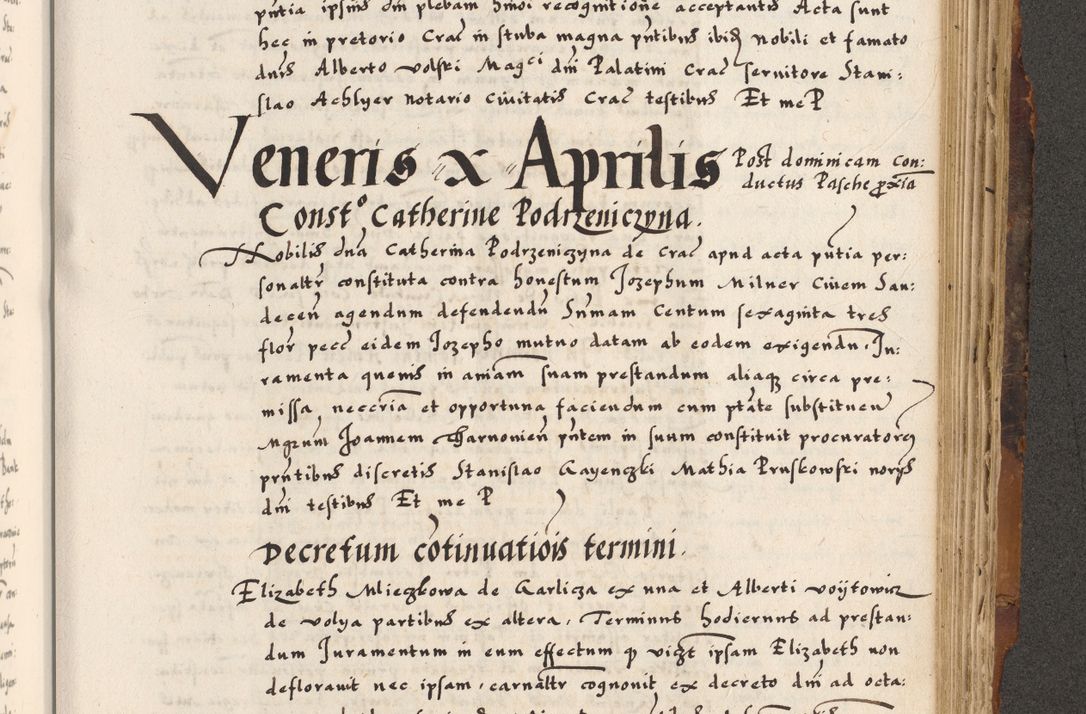 pñtia ipsius dñi plebani hmõi recognitione acceptantis Acta sunt
hec in pretorio Craĉ in stuba magna pñtibus ibidẽ Nobili et famato
dnis Alberto Volski Magci dñi Palatini Craĉ servitore Stani:
slao Achlyer notario Civitatis Craĉ testibus Et me P
Veneris x Aprilis Post dominicam Con:
ductus Pasche pxia
Const° Catherine Podrzeniczyna.
Nobilis dna Catherina Podrzeniczyna de Craĉ apud acta pñtia per:
sonaltr constituta contra honestum Jozephum Milner Civem San:
decen̄ agendum defendendũ Sm̃am Centum sexaginta tres
flor pecc eidem Jozepho mutuo datam ab eodem exigendũ. Ju:
ramenta quevis in aniam suam prestandum aliaq circa pre:
missa, neccria et opportuna faciendum cum ptate substituen
Mgrum Joannem Tharnonien pñtem in suum constituit procuratorẽ
pñtibus discretis Stanislao Gayenczki Mathia Pruskowski norijs
dñi testibus Et me P
Decretum cõtinuatiõis termini.
Elizabeth Mlieczkowa de Garlicza ex una et Alberti Voijtowicz
de Volya partibus ex altera, Terminus hodiernus ad prestan:
dum Juramentum in eum effectum q vigt ipsam Elizabeth non
defloravit nec ipsam, carnaltr cognovit ex decreto dñi ad octa: